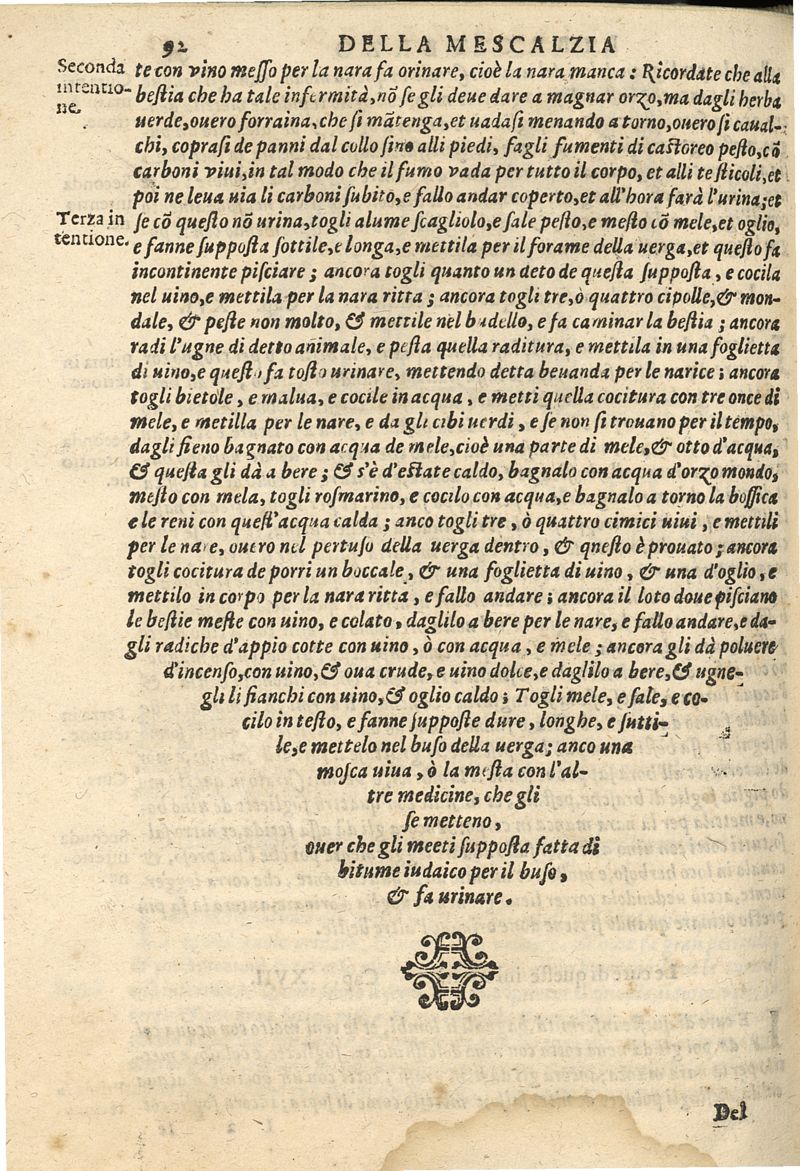 92 DELLA MESCALZIA
Seconda intentio-ne.
te con vino meſſo per la nara fa orinare, cioè la nara manca: Ricordate che alla
beſtia che ha tale infermità, nõ ſe gli deue dare a magnar orzo, ma dagli herba
uerde, ouero forraina, che ſi mãtenga, et uadaſi menando a torno, ouero ſi caual-
chi, copraſi de panni dal collo ſino alli piedi, fagli fumenti di caſtoreo peſto, cõ
carboni viui, in tal modo che il fumo vada per tutto il corpo, et alli teſticoli, et
poi ne leua uia li carboni ſubito, e fallo andar coperto, et all'hora farà l'urina; et
Terza in tentione.
ſe cõ queſto nõ urina, togli alume ſcagliolo, e ſale peſto, e meſto cõ mele, et oglio,
e fanne ſuppoſta ſottile, e longa, e mettila per il forame della uerga, et queſto fa
incontinente piſciare; ancora togli quanto un deto de queſta ſuppoſta, e cocila
nel uino, e mettila per la nara ritta; ancora togli tre, ò quattro cipolle, & mon-
dale, & peſte non molto, & mettile nel budello, e fa caminar la beſtia; ancora
radi l'ugne di detto animale, e peſta quella raditura, e mettila in una foglietta
di uino, e queſto fa toſto urinare, mettendo detta beuanda per le narice; ancora
togli bietole, e malua, e cocile in acqua, e metti quella cocitura con tre once di
mele, e metilla per le nare, e da gli cibi uerdi, e ſe non ſi trouano per il tempo,
dagli fieno bagnato con acqua de mele, cioè una parte di mele, & otto d'acqua,
& queſta gli dà a bere; & s'è d'eſtate caldo, bagnalo con acqua d'orzo mondo,
meſto con mela, togli roſmarino, e cocilo con acqua, e bagnalo a torno la boſſica
e le reni con queſt'acqua calda; anco togli tre, ò quattro cimici uiui, e mettili
per le nare, ouero nel pertuſo della uerga dentro, & queſto è prouato; ancora
togli cocitura de porri un boccale, & una foglietta di uino, & una d'oglio, e
mettilo in corpo per la nara ritta, e fallo andare; ancora il loto doue piſciano
le beſtie meſte con uino, e colato, daglilo a bere per le nare, e fallo andare, e da-
gli radiche d'appio cotte con uino, ò con acqua, e mele; ancora gli dà poluere
d'incenſo, con uino, & oua crude, e uino dolce, e daglilo a bere, & ugne-
gli li fianchi con uino, & oglio caldo; Togli mele, e ſale, e co-
cilo in teſto, e fanne ſuppoſte dure, longhe, e ſutti-
le, e mettelo nel buſo della uerga; anco una
moſca uiua, ò la meſta con l'al-
tre medicine, che gli
ſe metteno,
ouer che gli meeti ſuppoſta fatta di
bitume iudaico per il buſo,
& fa urinare.
Del